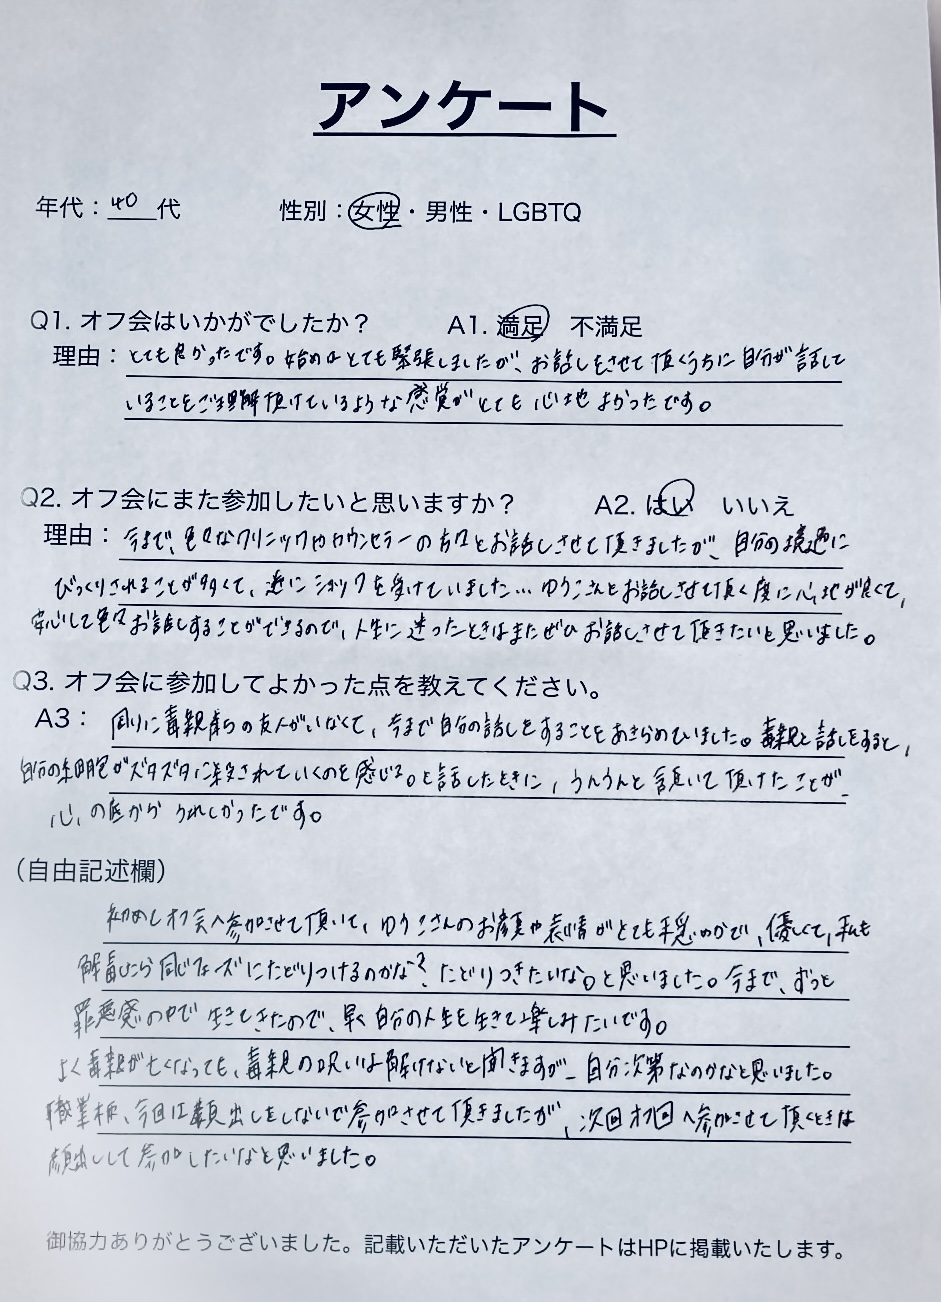 アンケート
年代：40代 性別：女性・男性・LGBTQ
Q1. オフ会はいかがでしたか？ A1. 満足 不満足
理由：とても良かったです。始めはとても緊張しましたが、お話しをさせて頂くうちに自分が話して
いることをご理解頂けているような感覚がとても心地よかったです。
Q2. オフ会にまた参加したいと思いますか？ A2. はい いいえ
理由：今まで、色々なクリニックやカウンセラーの方々とお話しさせて頂きましたが、自分の境遇に
びっくりされることが多くて、逆にショックを受けていました…ゆうこさんとお話しさせて頂く度に心地が良くて、
安心して色々お話しすることができるので、人生に迷ったときはまたぜひお話しさせて頂きたいと思いました。
Q3. オフ会に参加してよかった点を教えてください。
A3：周りに毒親育ちの友人がいなくて、今まで自分の話しをすることをあきらめていました。毒親と話しをすると、
自分の細胞がズタズタに殺されていくのを感じる。と話したときに、うんうんと頷いて頂けたことが
心の底からうれしかったです。
（自由記述欄）
初めてオフ会へ参加させて頂いて、ゆうこさんのお顔や表情がとても穏やかで、優しくて、私も
解毒したら同じフェーズにたどりつけるのかな？たどりつきたいな。と思いました。今まで、ずっと
罪悪感の中で生きてきたので、早く自分の人生を生きて楽しみたいです。
よく毒親が亡くなっても、毒親の呪いは解けないと聞きますが、自分次第なのかなと思いました。
職業柄、今回は顔出しをしないで参加させて頂きましたが、次回オフ回へ参加させて頂くときは
顔出しして参加したいなと思いました。
御協力ありがとうございました。記載いただいたアンケートはHPに掲載いたします。